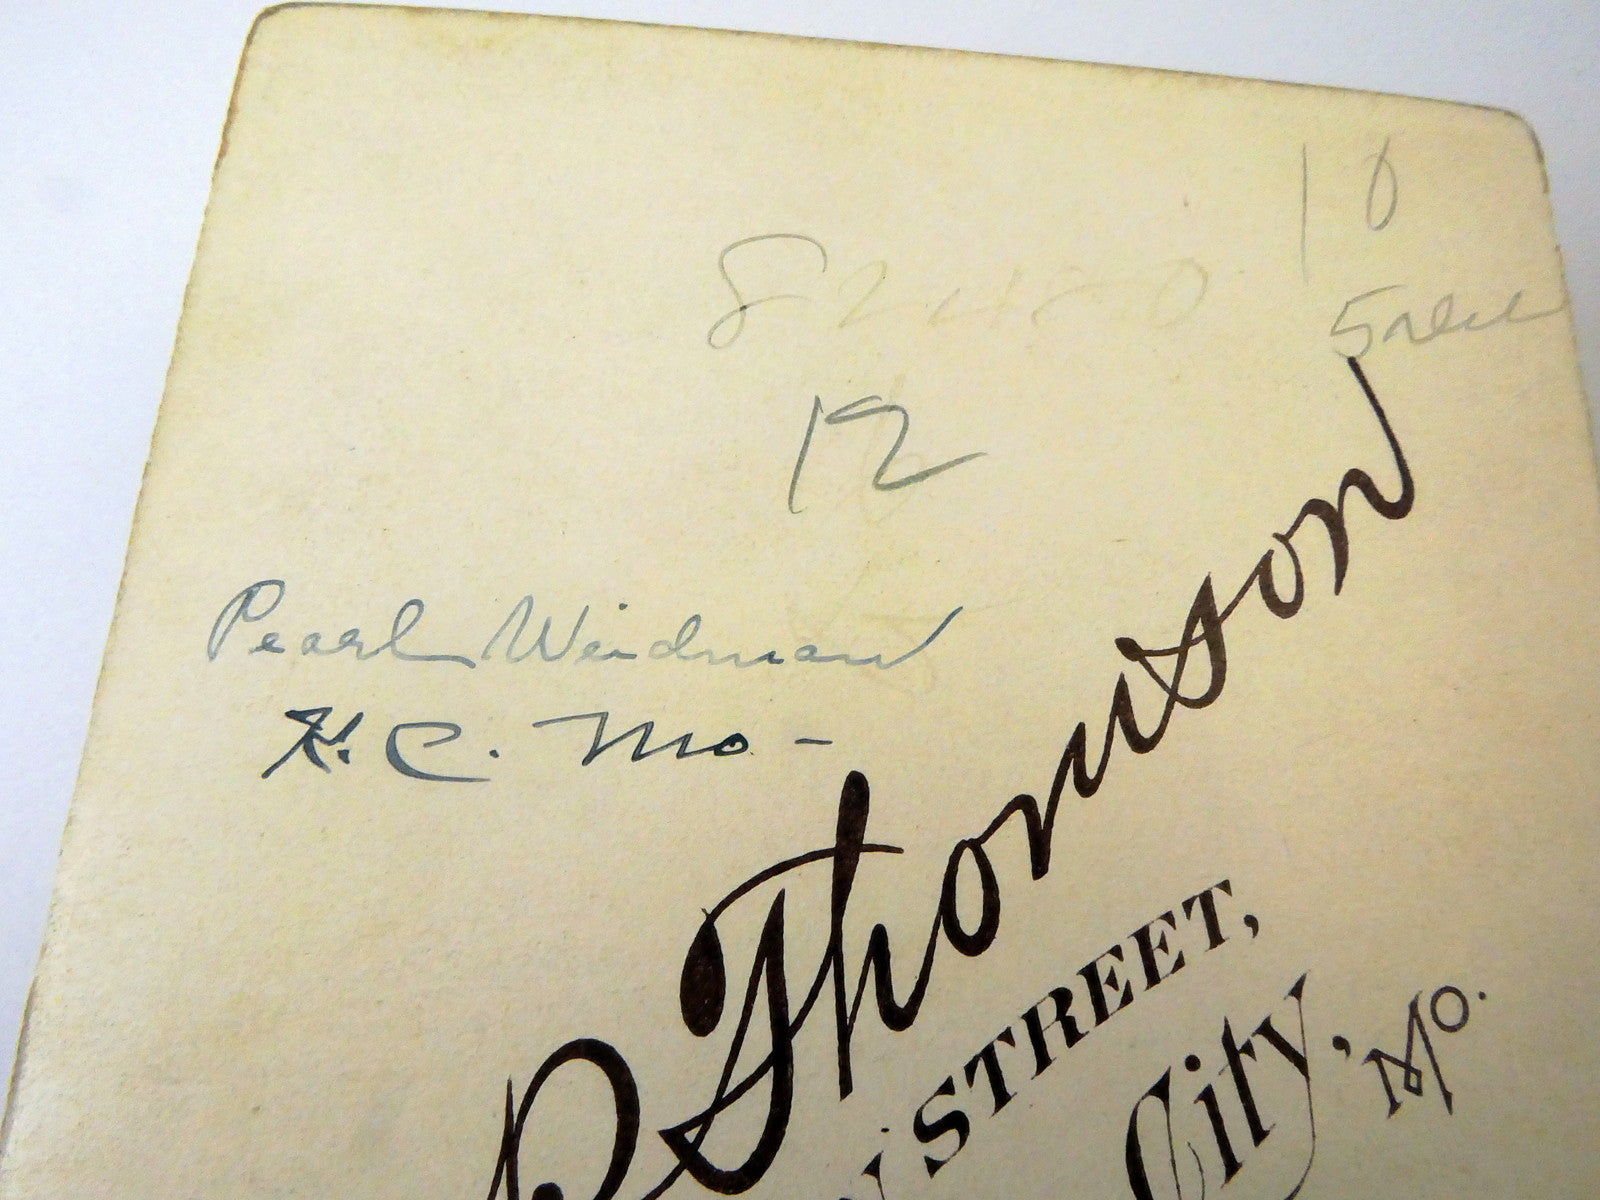 10
12
Pearl Weidman
K. C. Mo -
Thomson
STREET,
City, Mo.